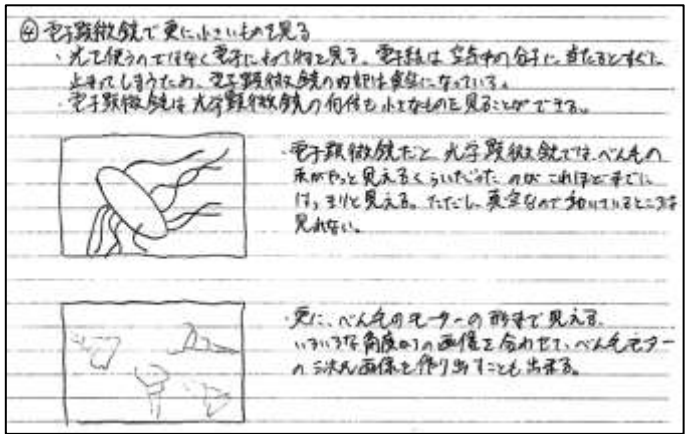 ④電子顕微鏡で更に小さいものを見る
・光を使うのではなく電子によって物を見る。電子線は空気中の分子に当たるとすぐに
止まってしまうため、電子顕微鏡の内部は真空になっている。
・電子顕微鏡は光学顕微鏡の何倍も小さなものを見ることができる。
・電子顕微鏡だと光学顕微鏡では、べん毛の
束がやっと見えるくらいだったのがこれほどまでに
はっきりと見える。ただし、真空なので動いているところは
見れない。
・更に、べん毛のモーターの形まで見える。
いろいろな角度からの画像を合わせて、べん毛モーター
の三次元画像を作り出すことも出来る。